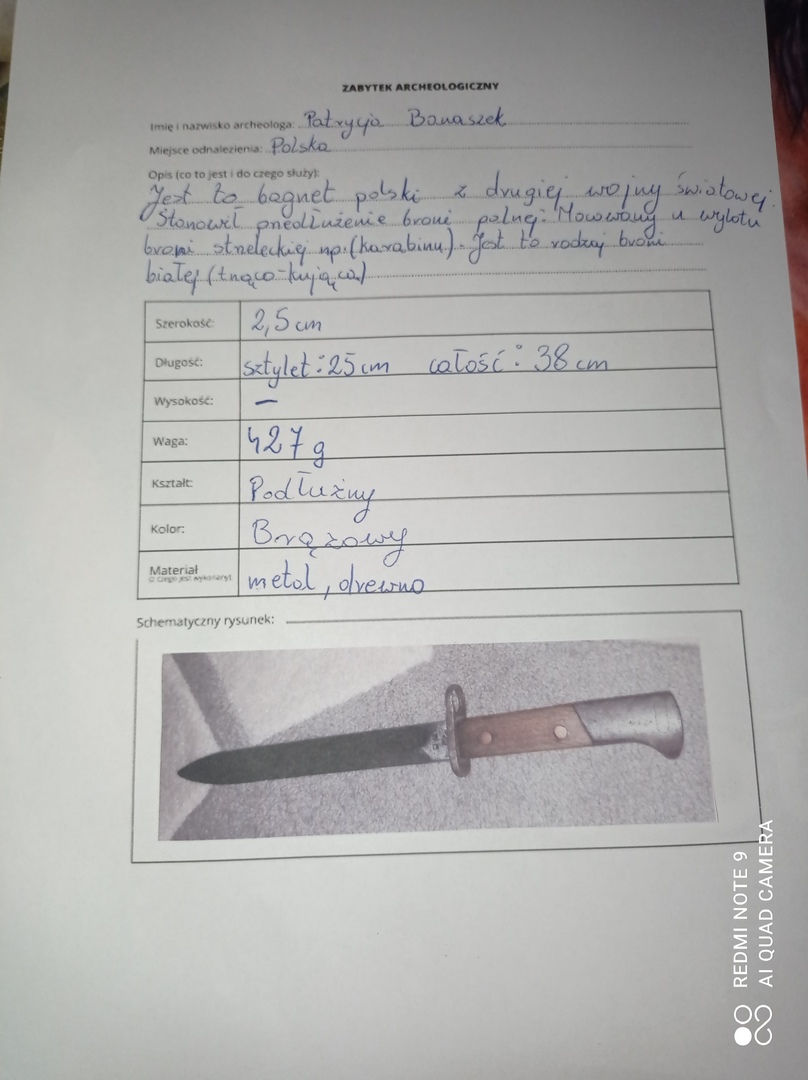 ZABYTEK ARCHEOLOGICZNY
Imię i nazwisko archeologa: Patrycja Banaszek
Miejsce odnalezienia: Polska
Opis (co to jest i do czego służy):
Jest to bagnet polski z drugiej wojny światowej.
Stanowił przedłużenie broni palnej. Mocowany u wylotu
broni strzeleckiej np.(karabinu). Jest to rodzaj broni
białej (tnąco-kująca)
Szerokość: 2,5 cm
Długość: sztylet: 25 cm całość: 38 cm
Wysokość: –
Waga: 427 g
Kształt: Podłużny
Kolor: Brązowy
Materiał metal, drewno
(z czego jest wykonany)
Schematyczny rysunek:
REDMI NOTE 9
AI QUAD CAMERA